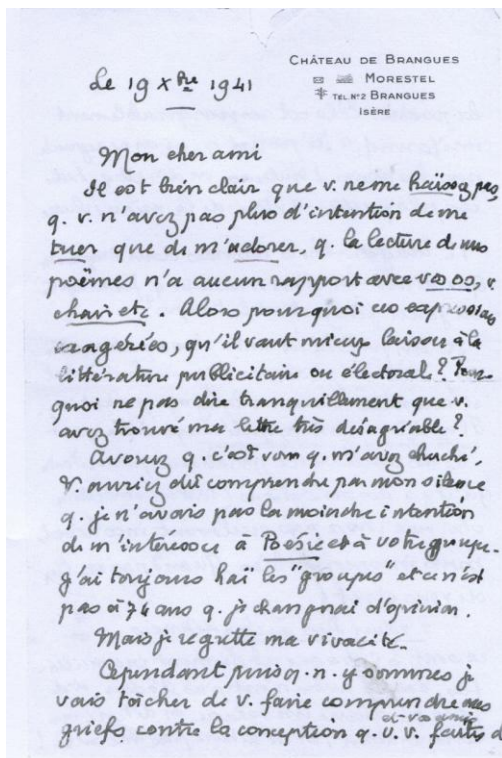 CHÂTEAU DE BRANGUES
MORESTEL
TEL. Nº2 BRANGUES
ISÈRE
Le 19 Xbre 1941
Mon cher ami
Il est bien clair que v. ne me haïssez pas,
q. v. n'avez pas plus d'intention de me
tuer que de m'adorer, q. la lecture de mes
poëmes n'a aucun rapport avec vos os, v.
chair etc. Alors pourquoi ces expressions
exagérées, qu'il vaut mieux laisser à la
littérature publicitaire ou électorale? Pour-
quoi ne pas dire tranquillement que v.
avez trouvé ma lettre très désagréable?
Avouez q. c'est vous q. m'avez cherché.
V. auriez dû comprendre par mon silence
q. je n'avais pas la moindre intention
de m'intéresser à Poésie et à votre groupe.
J'ai toujours haï les "groupes" et ce n'est
pas à 74 ans q. je changerai d'opinion.
Mais je regrette ma vivacité.
Cependant puisq. n. y sommes je
vais tâcher de v. faire comprendre mes
griefs contre la conception q. v. v. faites d